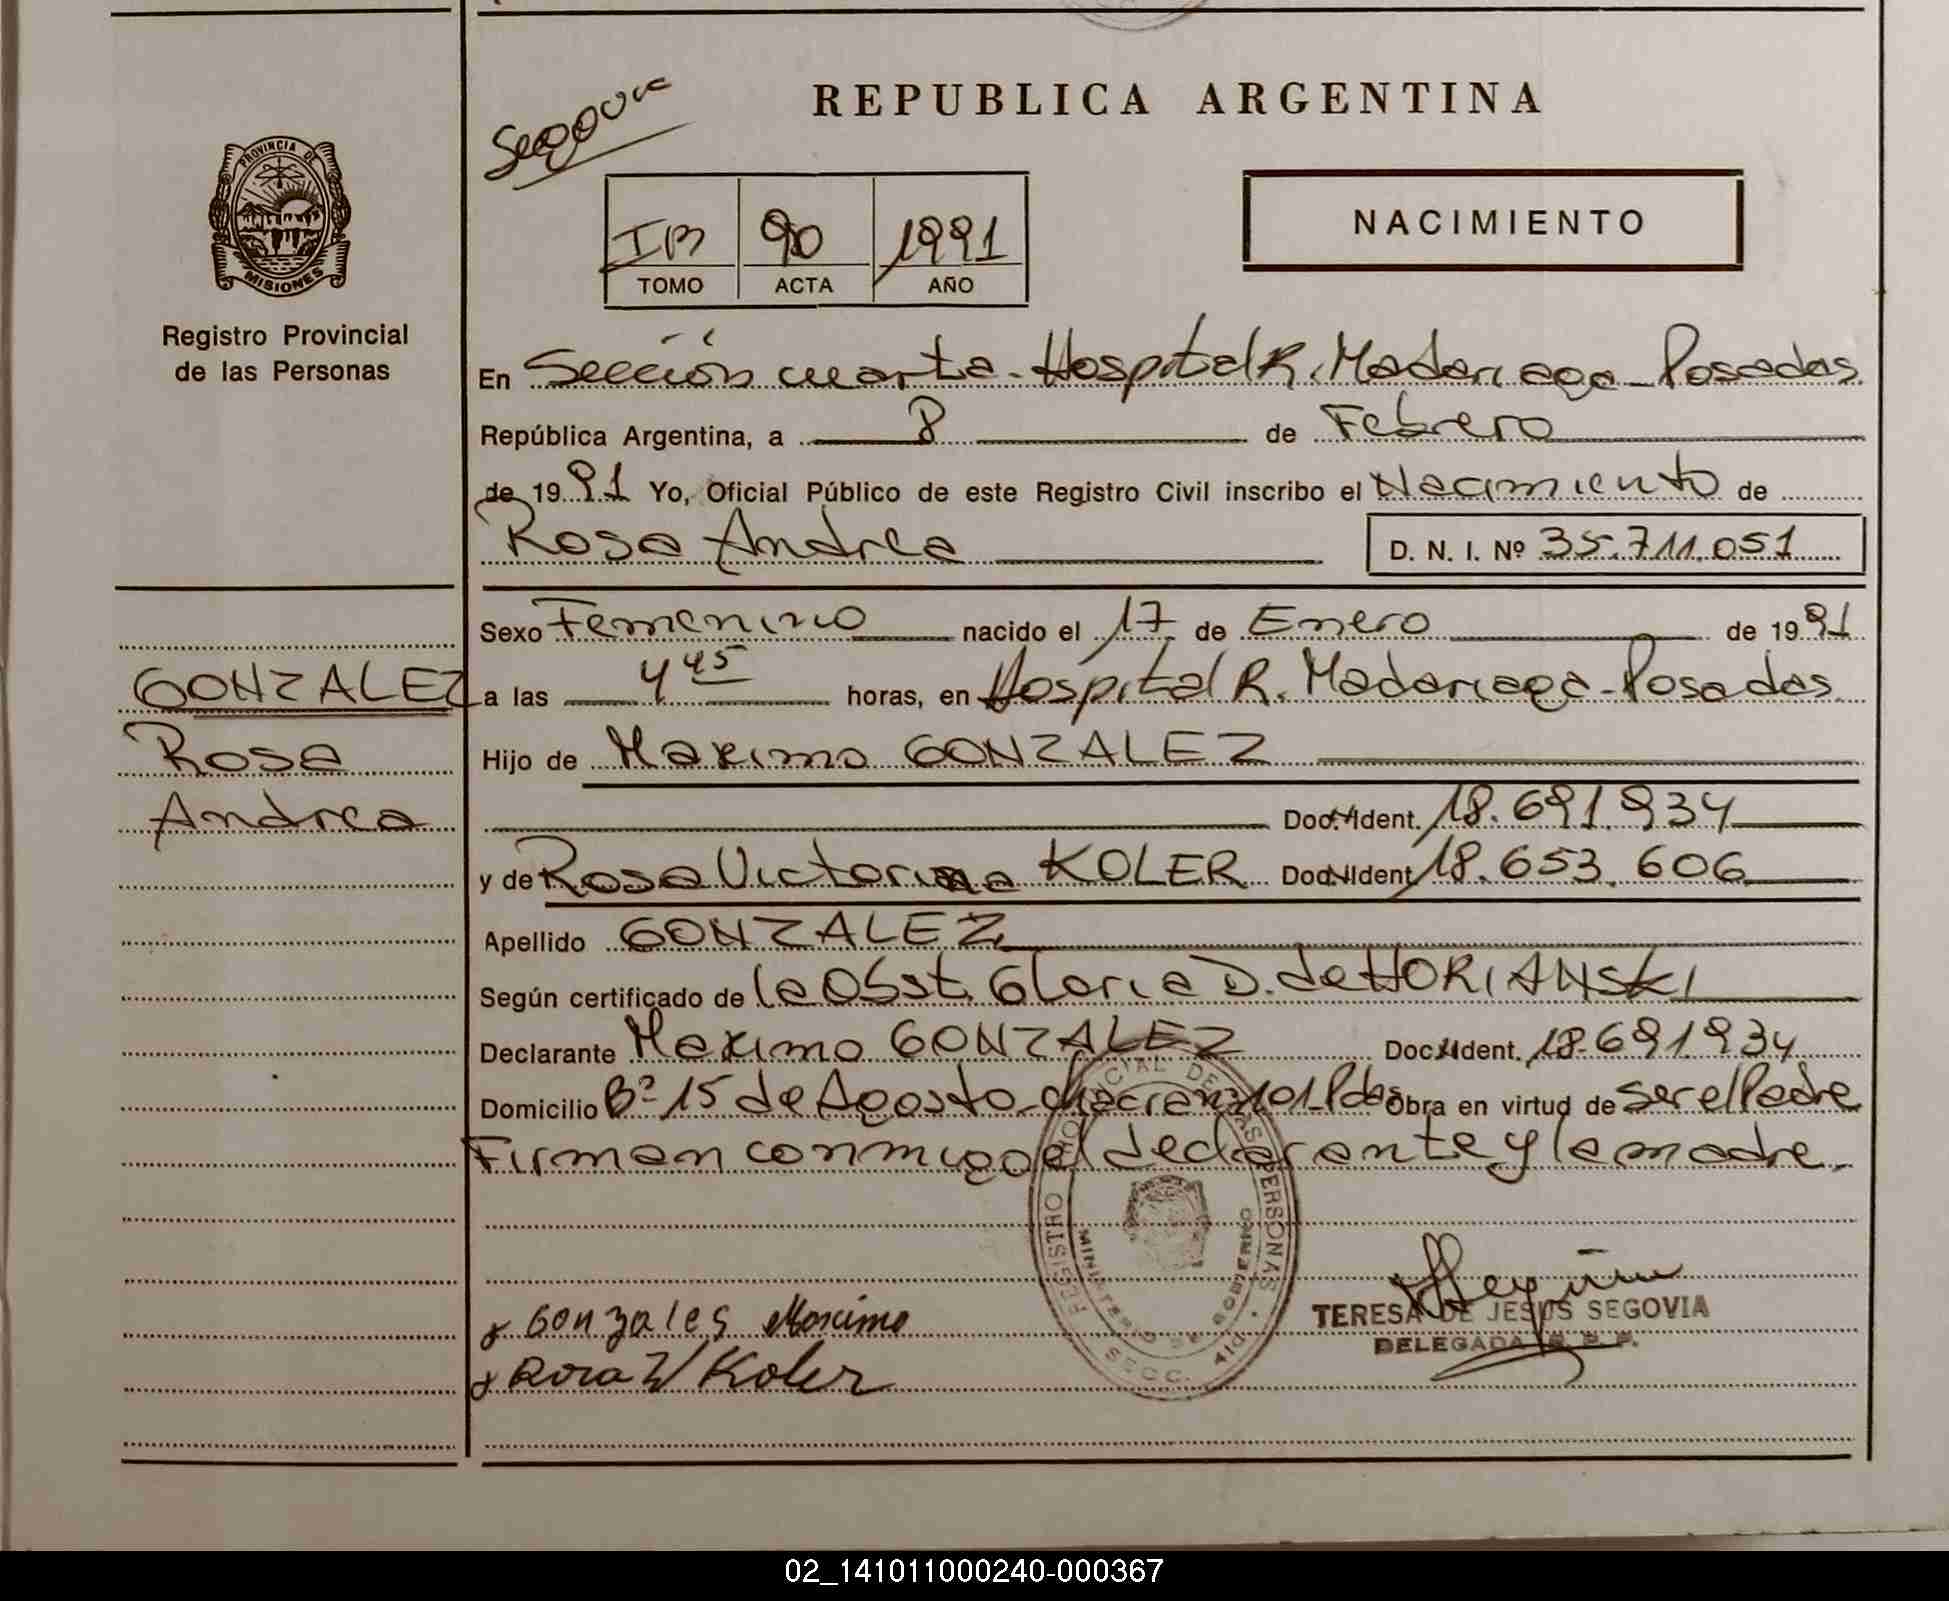 Segovia
REPUBLICA ARGENTINA
PROVINCIA DE
MISIONES
Registro Provincial
de las Personas
IB 90 1991
TOMO ACTA AÑO
NACIMIENTO
En Sección cuarta - Hospital R. Madariaga - Posadas
República Argentina, a 8 de Febrero
de 1991 Yo, Oficial Público de este Registro Civil inscribo el Nacimiento de
Rosa Andrea D. N. I. Nº 35.711.051
Sexo Femenino nacido el 17 de Enero de 1991
GONZALEZ
Rosa
Andrea
a las 4 45 horas, en Hospital R. Madariaga - Posadas
Hijo de Maximo GONZALEZ
Doc. Ident. 18.691.934
y de Rosa Victorina KOLER Doc. Ident. 18.653.606
Apellido GONZALEZ
Según certificado de la Obst. Gloria D. de HORIANSKI
Declarante Maximo GONZALEZ Doc. Ident. 18.691934
Domicilio Bº 15 de Agosto - chacra 101 - Pdas Obra en virtud de ser el Padre
Firman conmigo el declarante y la madre.
REGISTRO PROVINCIAL DE LAS PERSONAS
MINISTERIO DE GOBIERNO
Gonzales Maximo
Rosa V Koler
TERESA DE JESUS SEGOVIA
DELEGADA R. P. P.
02_141011000240-000367